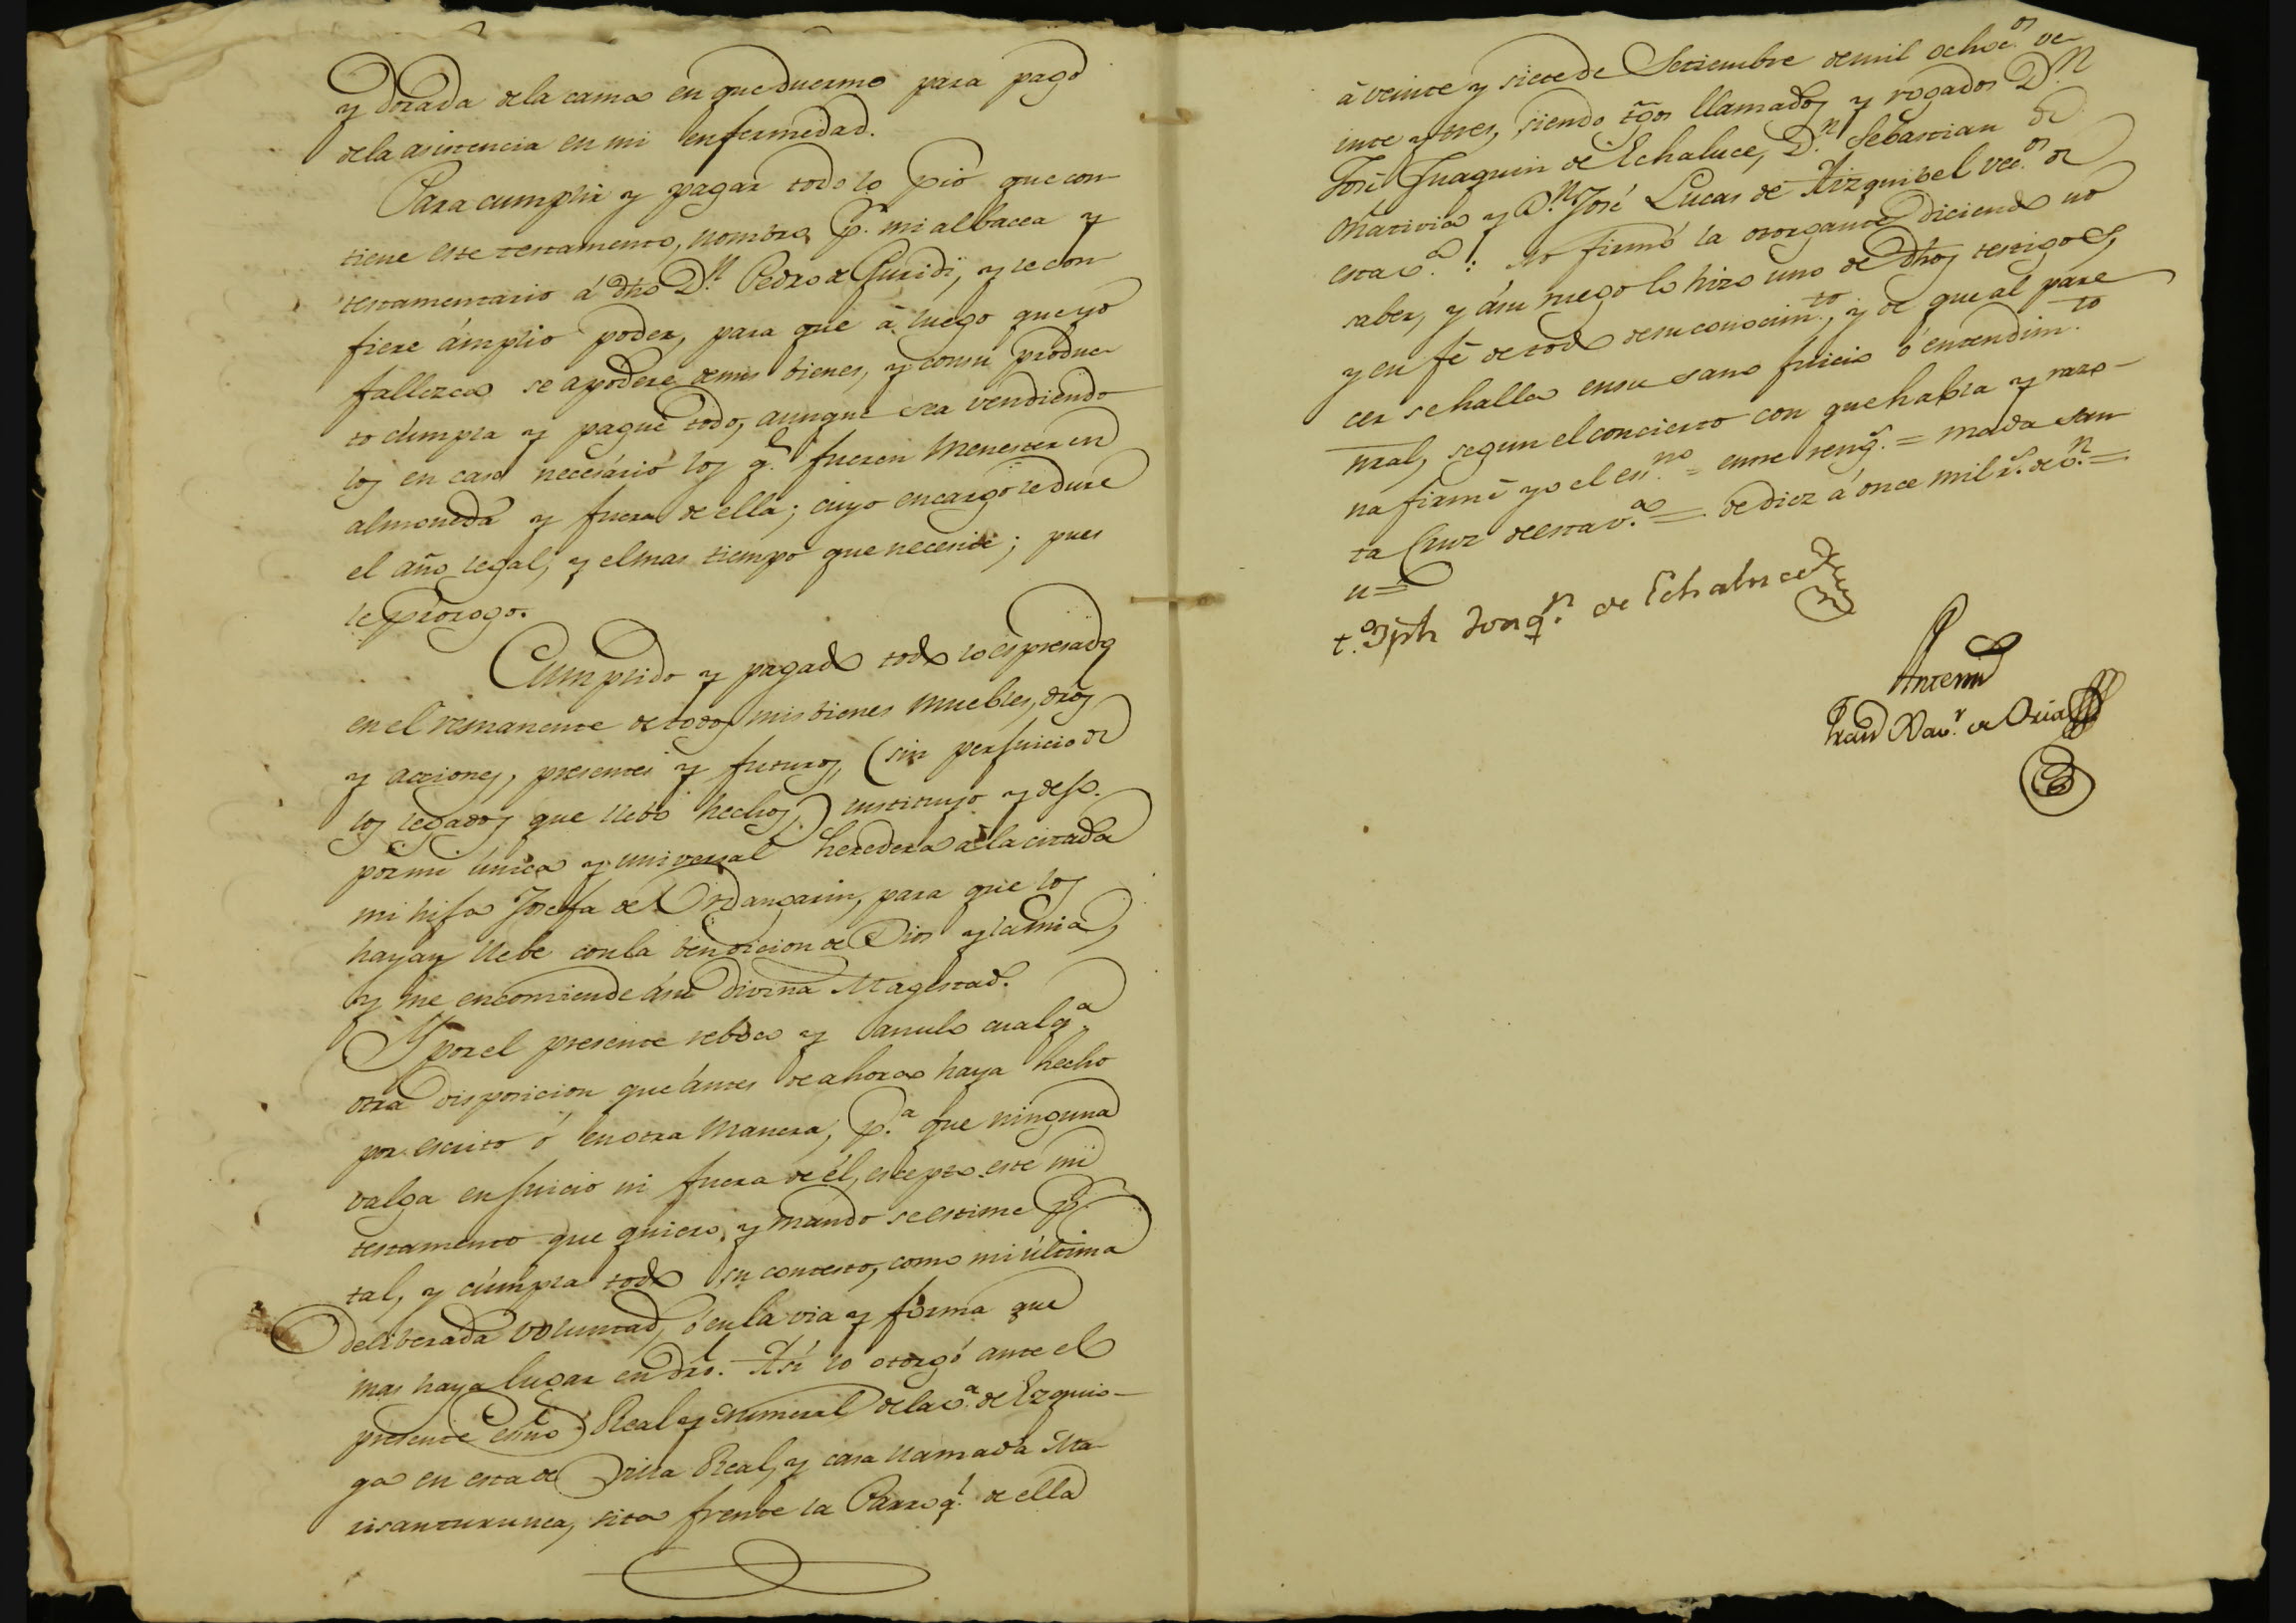 y dorada de la cama en que duermo para pago
de la asistencia en mi enfermedad.
Para cumplir y pagar todo lo pio que con
tiene este testamento, nombro p.r mi albacea y
testamentario á dho D.n Pedro de Guridi, y le con
fiere ámplio poder, para que á luego que yo
fallezca se apodere de mis bienes, y con su produc
to cumpla y pague todo, aunque sea vendiendo
los en caso necesário los q.e fueren menester en
almoneda y fuera de ella; cuyo encargo le dure
el año legal, y el mas tiempo que necesite; pues
le prorogo.
Cumplido y pagado todo lo espresado
en el remanente de todos mis bienes muebles, dros
y acciones, presentes y futuros, (sin perjuicio de
los legados que llebo hechos,) instituyo y dejo
por mi única y universal heredera a la citada
mi hija Josefa de Urdangarin, para que los
haya y llebe con la bendicion de Dios y la mia,
y me encomiende á su Divina Magestad.
Y por el presente reboco y anulo cualq.a
otra disposicion que ántes de ahora haya hecho
por escrito ó en otra manera, p.a que ninguna
valga en juicio ni fuera de él, escepto este mi
testamento que quiero, y mando se estime p.r
tal, y cúmpla todo su contesto, como mi última
deliberada voluntad, ó en la via y forma que
mas haya lugar en dro. Así lo otorgó ante el
presente esno Real y Numeral de la v.a de Ezquio-
ga en esta de Villa Real, y casa llamada Ma-
risanturunea, sita frente la Parroq.l de ella
á veinte y siete de Setiembre de mil ochoc.os ve
inte y tres, siendo tgos llamados y rogados D.n
José Juaquin de Echaluce, D.n Sebastian de
Oñativia y D.n José Lucas de Aizquibel vec.os de
esta v.a: No firmó la otorgante, diciendo no
saber, y á su ruego lo hizo uno de dhos testigos,
y en fé de todo de su conocim.to, y de que al pare
cer se halla en su sano juicio ó entendim.to
nral, segun el concierto con que habla y razo-
na firmé yo el es.no = entre reng.s = mada san
ta Cruz de esta v.a = de diez á once mil r.s de v.n =
u =
t.o Jph Joaq.n de Echaluce
Antemi
Fran.co Xav.r de Oria